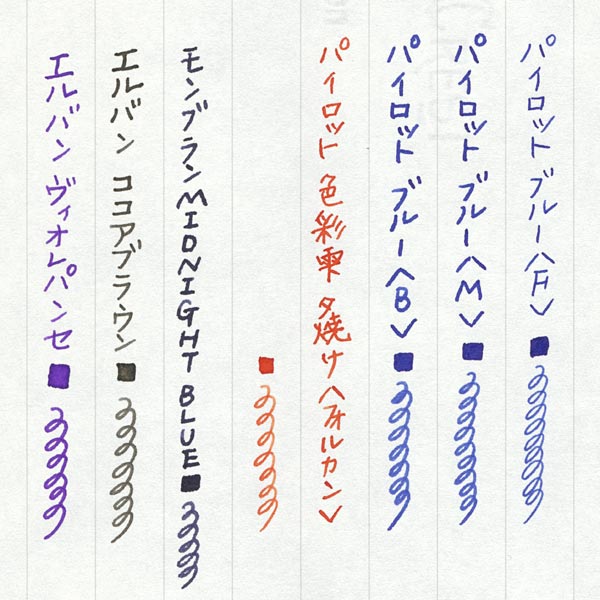 パイロット ブルー〈F〉
パイロット ブルー〈M〉
パイロット ブルー〈B〉
パイロット 色彩雫 夕焼け〈フォルカン〉
モンブランMIDNIGHT BLUE
エルバン ココアブラウン
エルバン ヴィオレパンセ